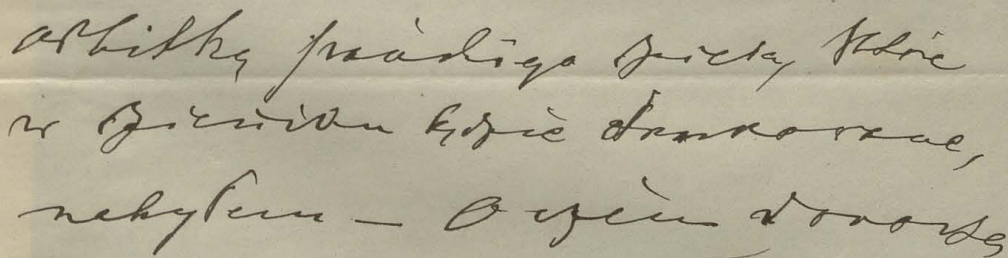 odbitkę każdego dzieła, które
w dzienniku będzie drukowane,
nabyłem — O czém donoszę